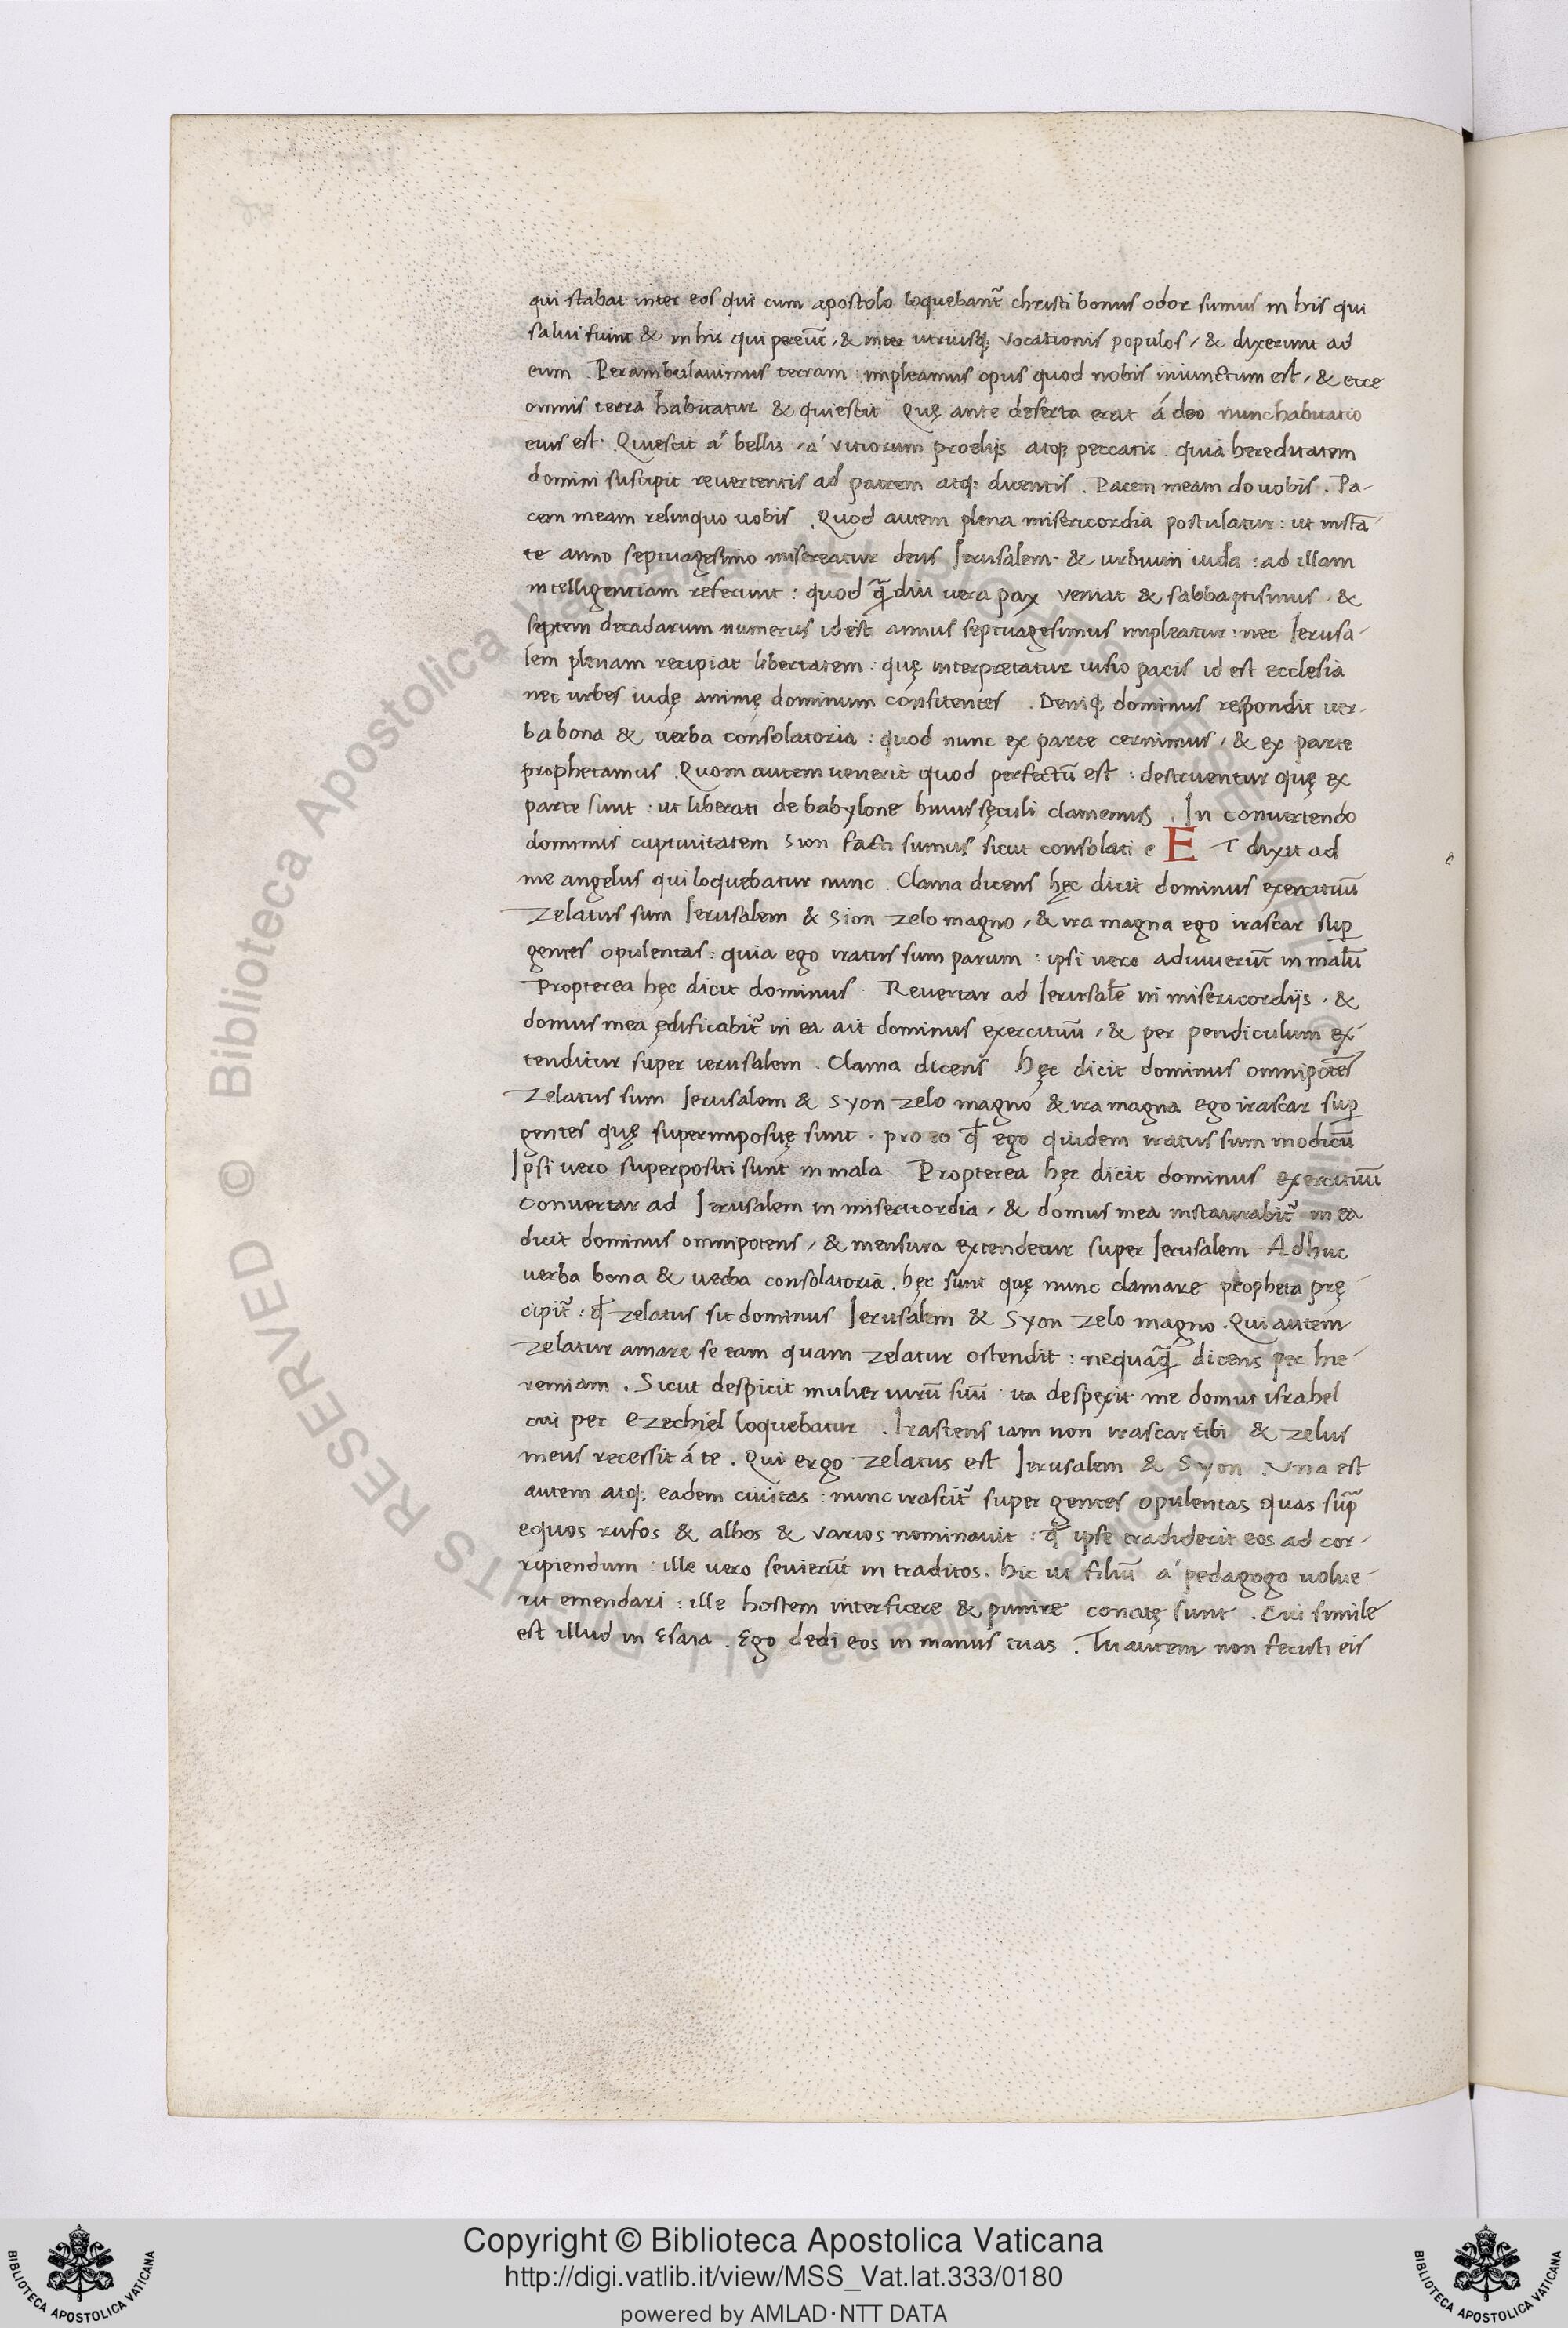 qui stabat inter eos qui cum apostolo loquebant̃ christi bonus odor sumus in his qui
salui fiunt & in his qui pereũt, & inter utriusq; vocationis populos, & dixerunt ad
eum . Perambulauimus terram : impleamus opus quod nobis iniunctum est, & ecce
omnis terra habitatur & quiescit Quę ante deserta erat á deo nunc habitatio
eius est. Quiescit a' bellis, a' vitiorum proelijs atq; peccatis : quia hereditatem
domini suscipit reuertentis ad patrem atq; dicentis . Pacem meam do uobis . Pa-
cem meam relinquo uobis . Quod autem plena misericordia postulatur : ut instã-
te anno septuagesimo misereatur deus Jerusalem & urbium iuda : ad illam
intelligentiam referunt : quod q̃diu uera pax veniat & sabbaptismus . &
septem decadarum numerus id est annus septuagesimus impleatur : nec Jerusa-
lem plenam recipiat libertatem : quę interpretatur uisio pacis id est ecclesia
nec urbes iudę animę dominum confitentes . Deniq; dominus respondit uer-
ba bona & uerba consolatoria : quod nunc ex parte cernimus, & ex parte
prophetamus . Quom autem uenerit quod perfectũ est : destruentur quę ex
parte sunt : ut liberati de babylone huius sęculi clamemus . In conuertendo
dominus captiuitatem sion facti sumus sicut consolati e E T dixit ad
me angelus qui loquebatur nunc . Clama dicens hęc dicit dominus exercituũ
Zelatus sum Jerusalem & Sion zelo magno, & ira magna ego irascar suꝑ
gentes opulentas : quia ego iratus sum parum : ipsi uero adiuuerũt in malũ
Propterea hęc dicit dominus . Reuertar ad Jerusalẽ in misericordijs . &
domus mea ędificabit̃ in ea ait dominus exercituũ, & per pendiculum ex-
tenditur super ierusalem . Clama dicens hęc dicit dominus omnipotẽs
Zelatus sum Jerusalem & syon zelo magno & ira magna ego irascar suꝑ
gentes quę superimpositę sunt . pro eo q̃ ego quidem iratus sum modicũ
Ipsi uero superpositi sunt in mala . Propterea hęc dicit dominus exercituũ
Conuertar ad Jerusalem in misericordia, & domus mea instaurabit̃ in ea
dicit dominus omnipotens, & mensura extendetur super Jerusalem . Adhuc
uerba bona & uerba consolatoria . hęc sunt quę nunc clamare propheta prę
cipit̃ : q̃ zelatus sit dominus Jerusalem & Syon zelo magno . Qui autem
Zelatur amare se eam quam zelatur ostendit : nequaq̃ dicens per hie-
remiam . Sicut despicit mulier uirũ suũ : ita despexit me domus israhel
cui per ezechiel loquebatur . Irascens iam non irascar tibi & zelus
meus recessit á te . Qui ergo zelatus est Jerusalem & Syon . Una est
autem atq; eadem ciuitas : nunc irascit̃ super gentes opulentas quas sup̃
equos rufos & albos & varios nominauit : q̃ ipse tradiderit eos ad cor-
ripiendum : ille vero seuierũt in traditos . hic ut filiũ a' pedagogo uolue-
rit emendari : ille hostem interficere & punire conatę sunt . Cui simile
est illud in Esaia . Ego dedi eos in manus tuas . Tu autem non fecisti eis
© Biblioteca Apostolica Vaticana ALL RIGHTS RESERVED
Copyright © Biblioteca Apostolica Vaticana
http://digi.vatlib.it/view/MSS_Vat.lat.333/0180
powered by AMLAD·NTT DATA
BIBLIOTECA APOSTOLICA VATICANA
BIBLIOTECA APOSTOLICA VATICANA